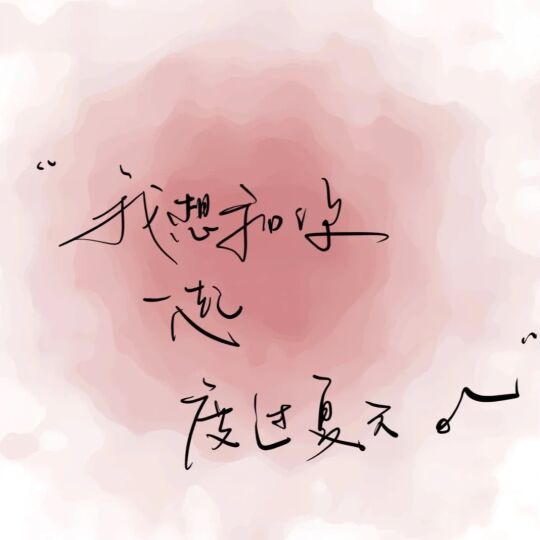 “我想和你
一起
度过夏天。”